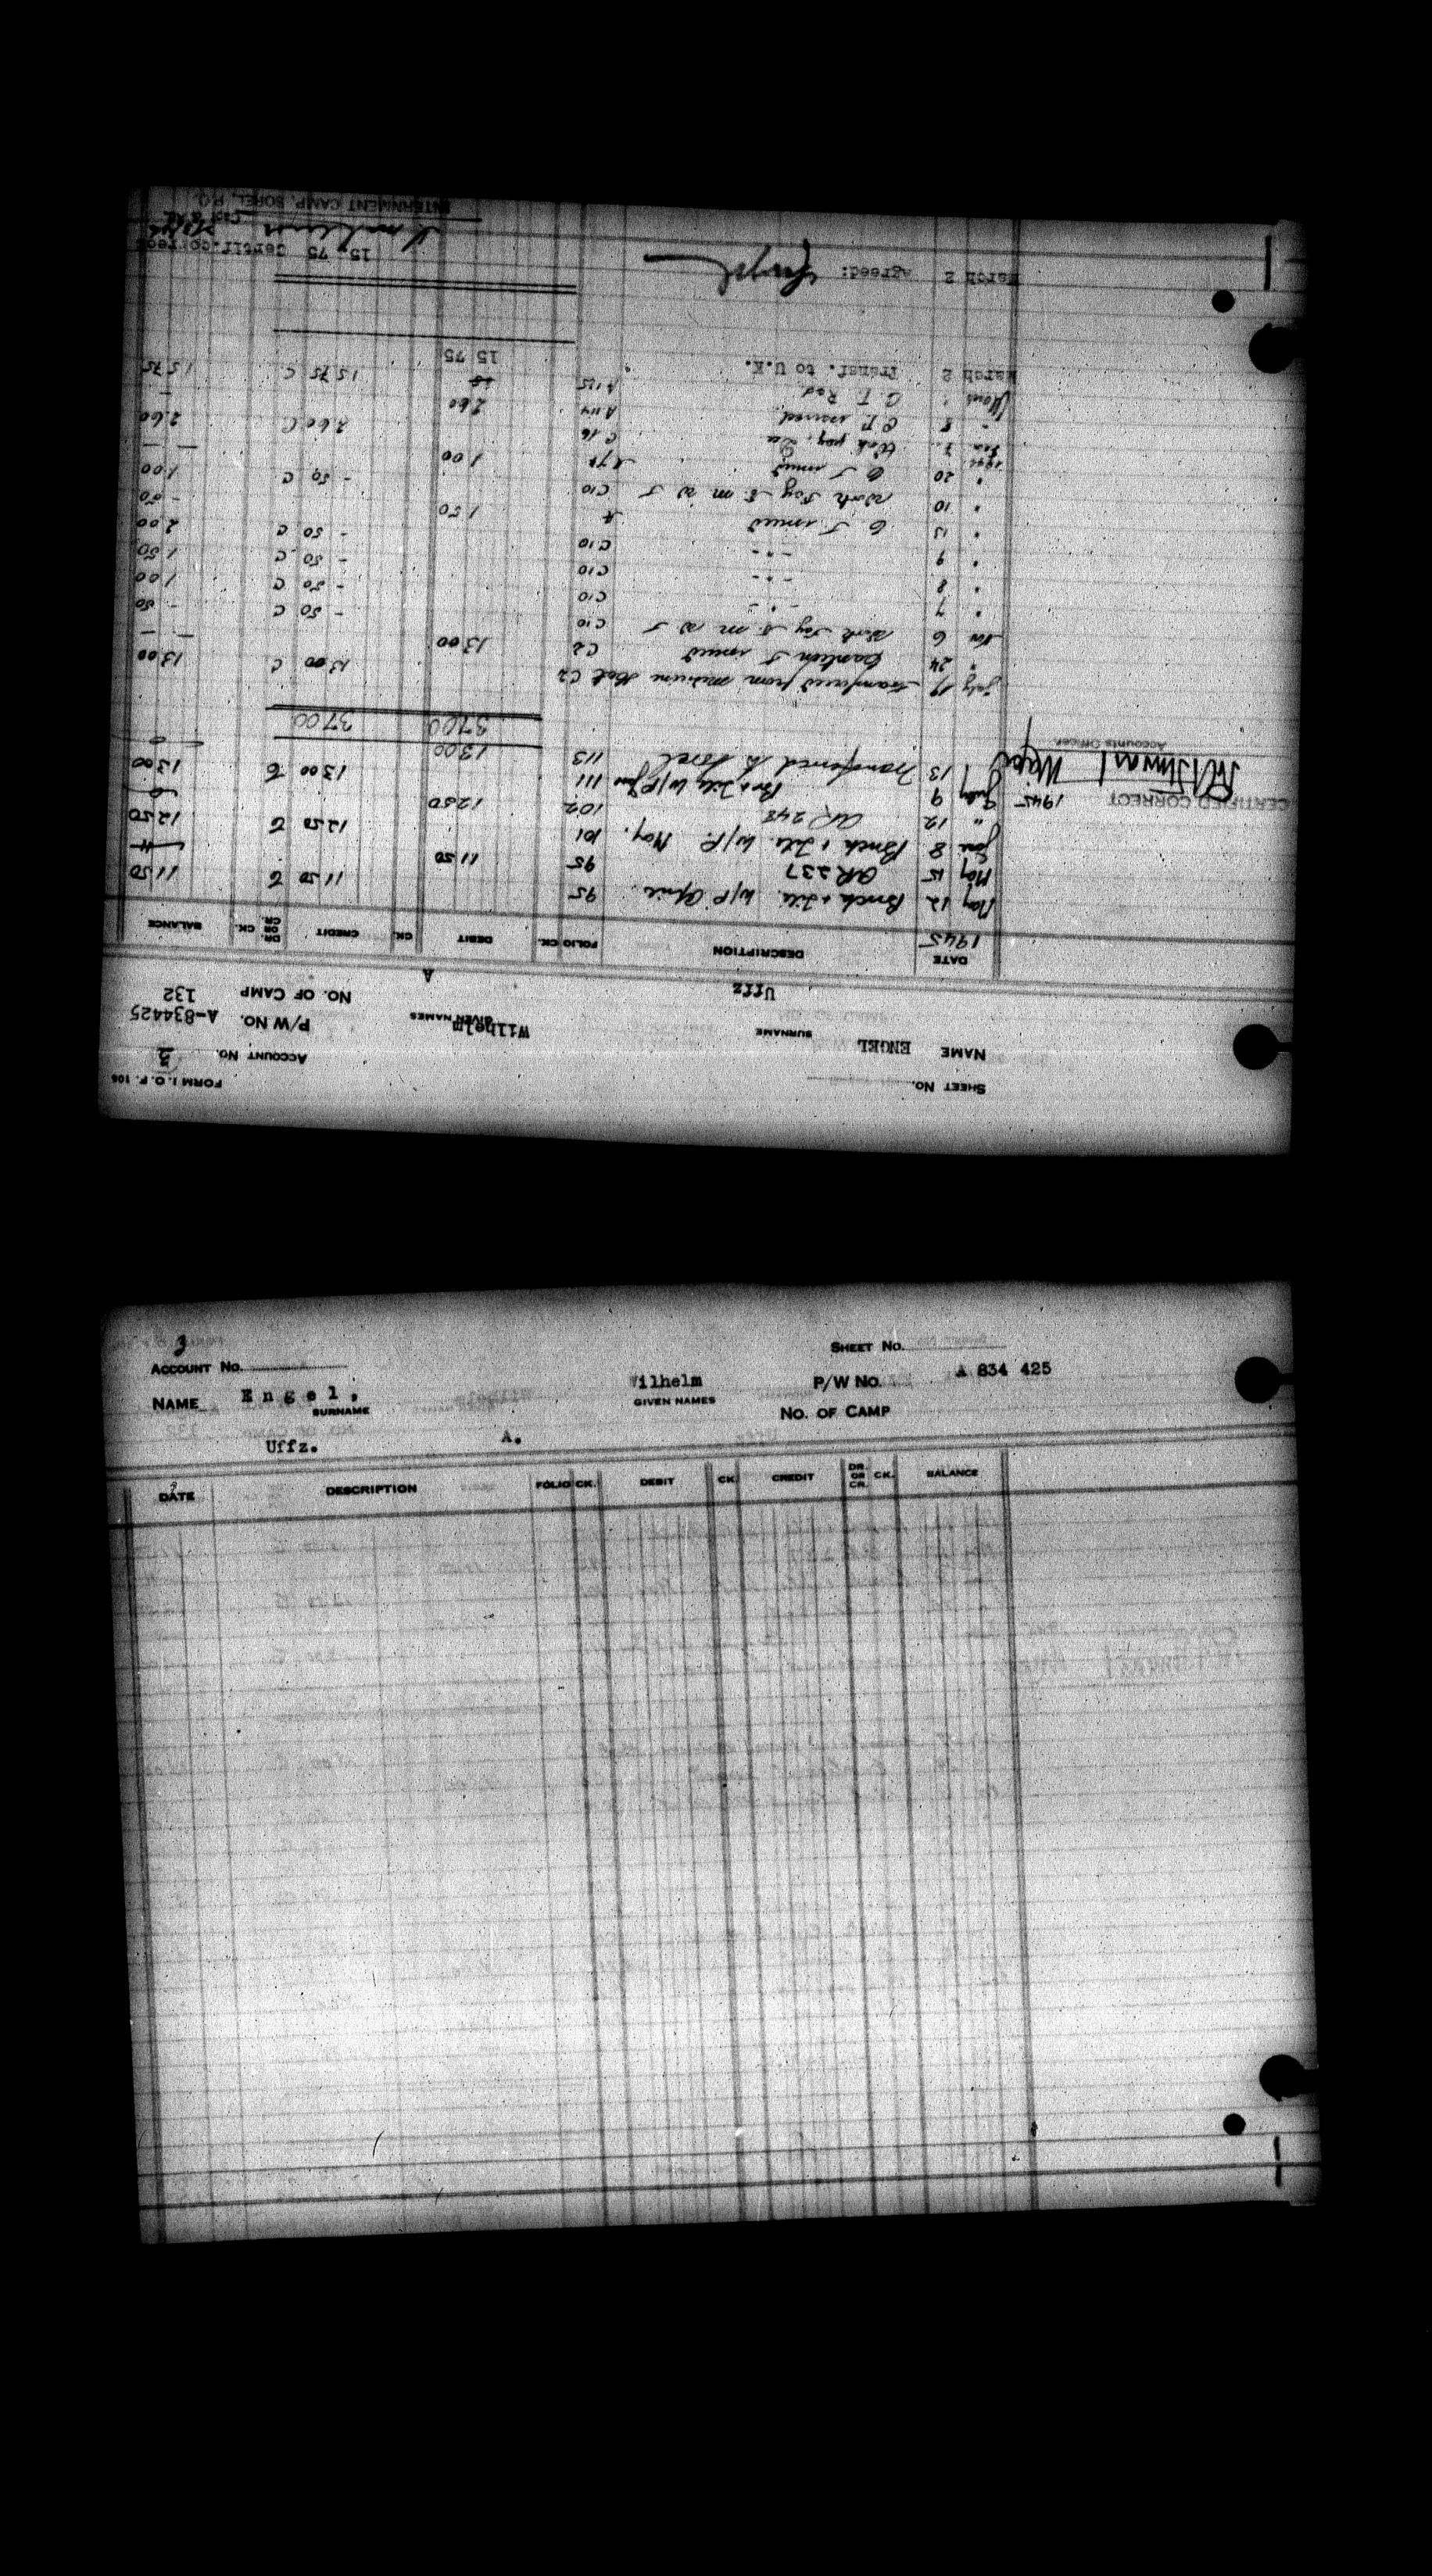 FORM I.O.F. 106
SHEET No. ACCOUNT No. 3
NAME ENGEL Wilhelm P/W NO. A-834425
SURNAME GIVEN NAMES
Uffz A NO. OF CAMP 132
DATE DESCRIPTION FOLIO CK. DEBIT CK. CREDIT DR. OR CR. CK. BALANCE
1945
May 12 Brick & Tile W/P April 95 11 50 C 11 50
May 15 AR 237 95 11 50
June 8 Brick & Tile W/P. May. 101 12 50 C 12 50
" 12 AR 248 102 12 50
July 9 Br & Tile W/P June 111 13 00 C 13 00
CERTIFIED CORRECT 1945
13 Transferred to Sorel 113 13 00
Major
Accounts Officer
37 00 37 00
July 17 transferred from C2 13 00 C 13 00
" 24 Canteen T issued C2 13 00 — —
Nov 6 Work Pay C10 - 50 C - 50
" 7 - " - C10 - 50 C 1 00
" 8 - " - C10 - 50 C 1 50
" 9 - " - C10 - 50 C 2 00
" 13 C T issued 1 50 - 50
" 10 Work Pay C10 - 50 C 1 00
" 20 C T issued 1 00 — —
1946
Jan 7 Work pay, Dec C 16 2 60 C 2 60
" 8 C.T. issued A 114 2 60 —
C T Red A 125 15 75 C 15 75
March 2 Transf. to U.K. 15 75
March 2 Agreed: Engel 15 75 Certif.correct
INTERNMENT CAMP, SOREL, P.Q.
3
ACCOUNT No. SHEET No.
NAME Engel, Wilhelm P/W No. A 834 425
SURNAME GIVEN NAMES
No. OF CAMP
Uffz. A.
DATE DESCRIPTION FOLIO CK. DEBIT CK. CREDIT DR. OR CR. CK. BALANCE